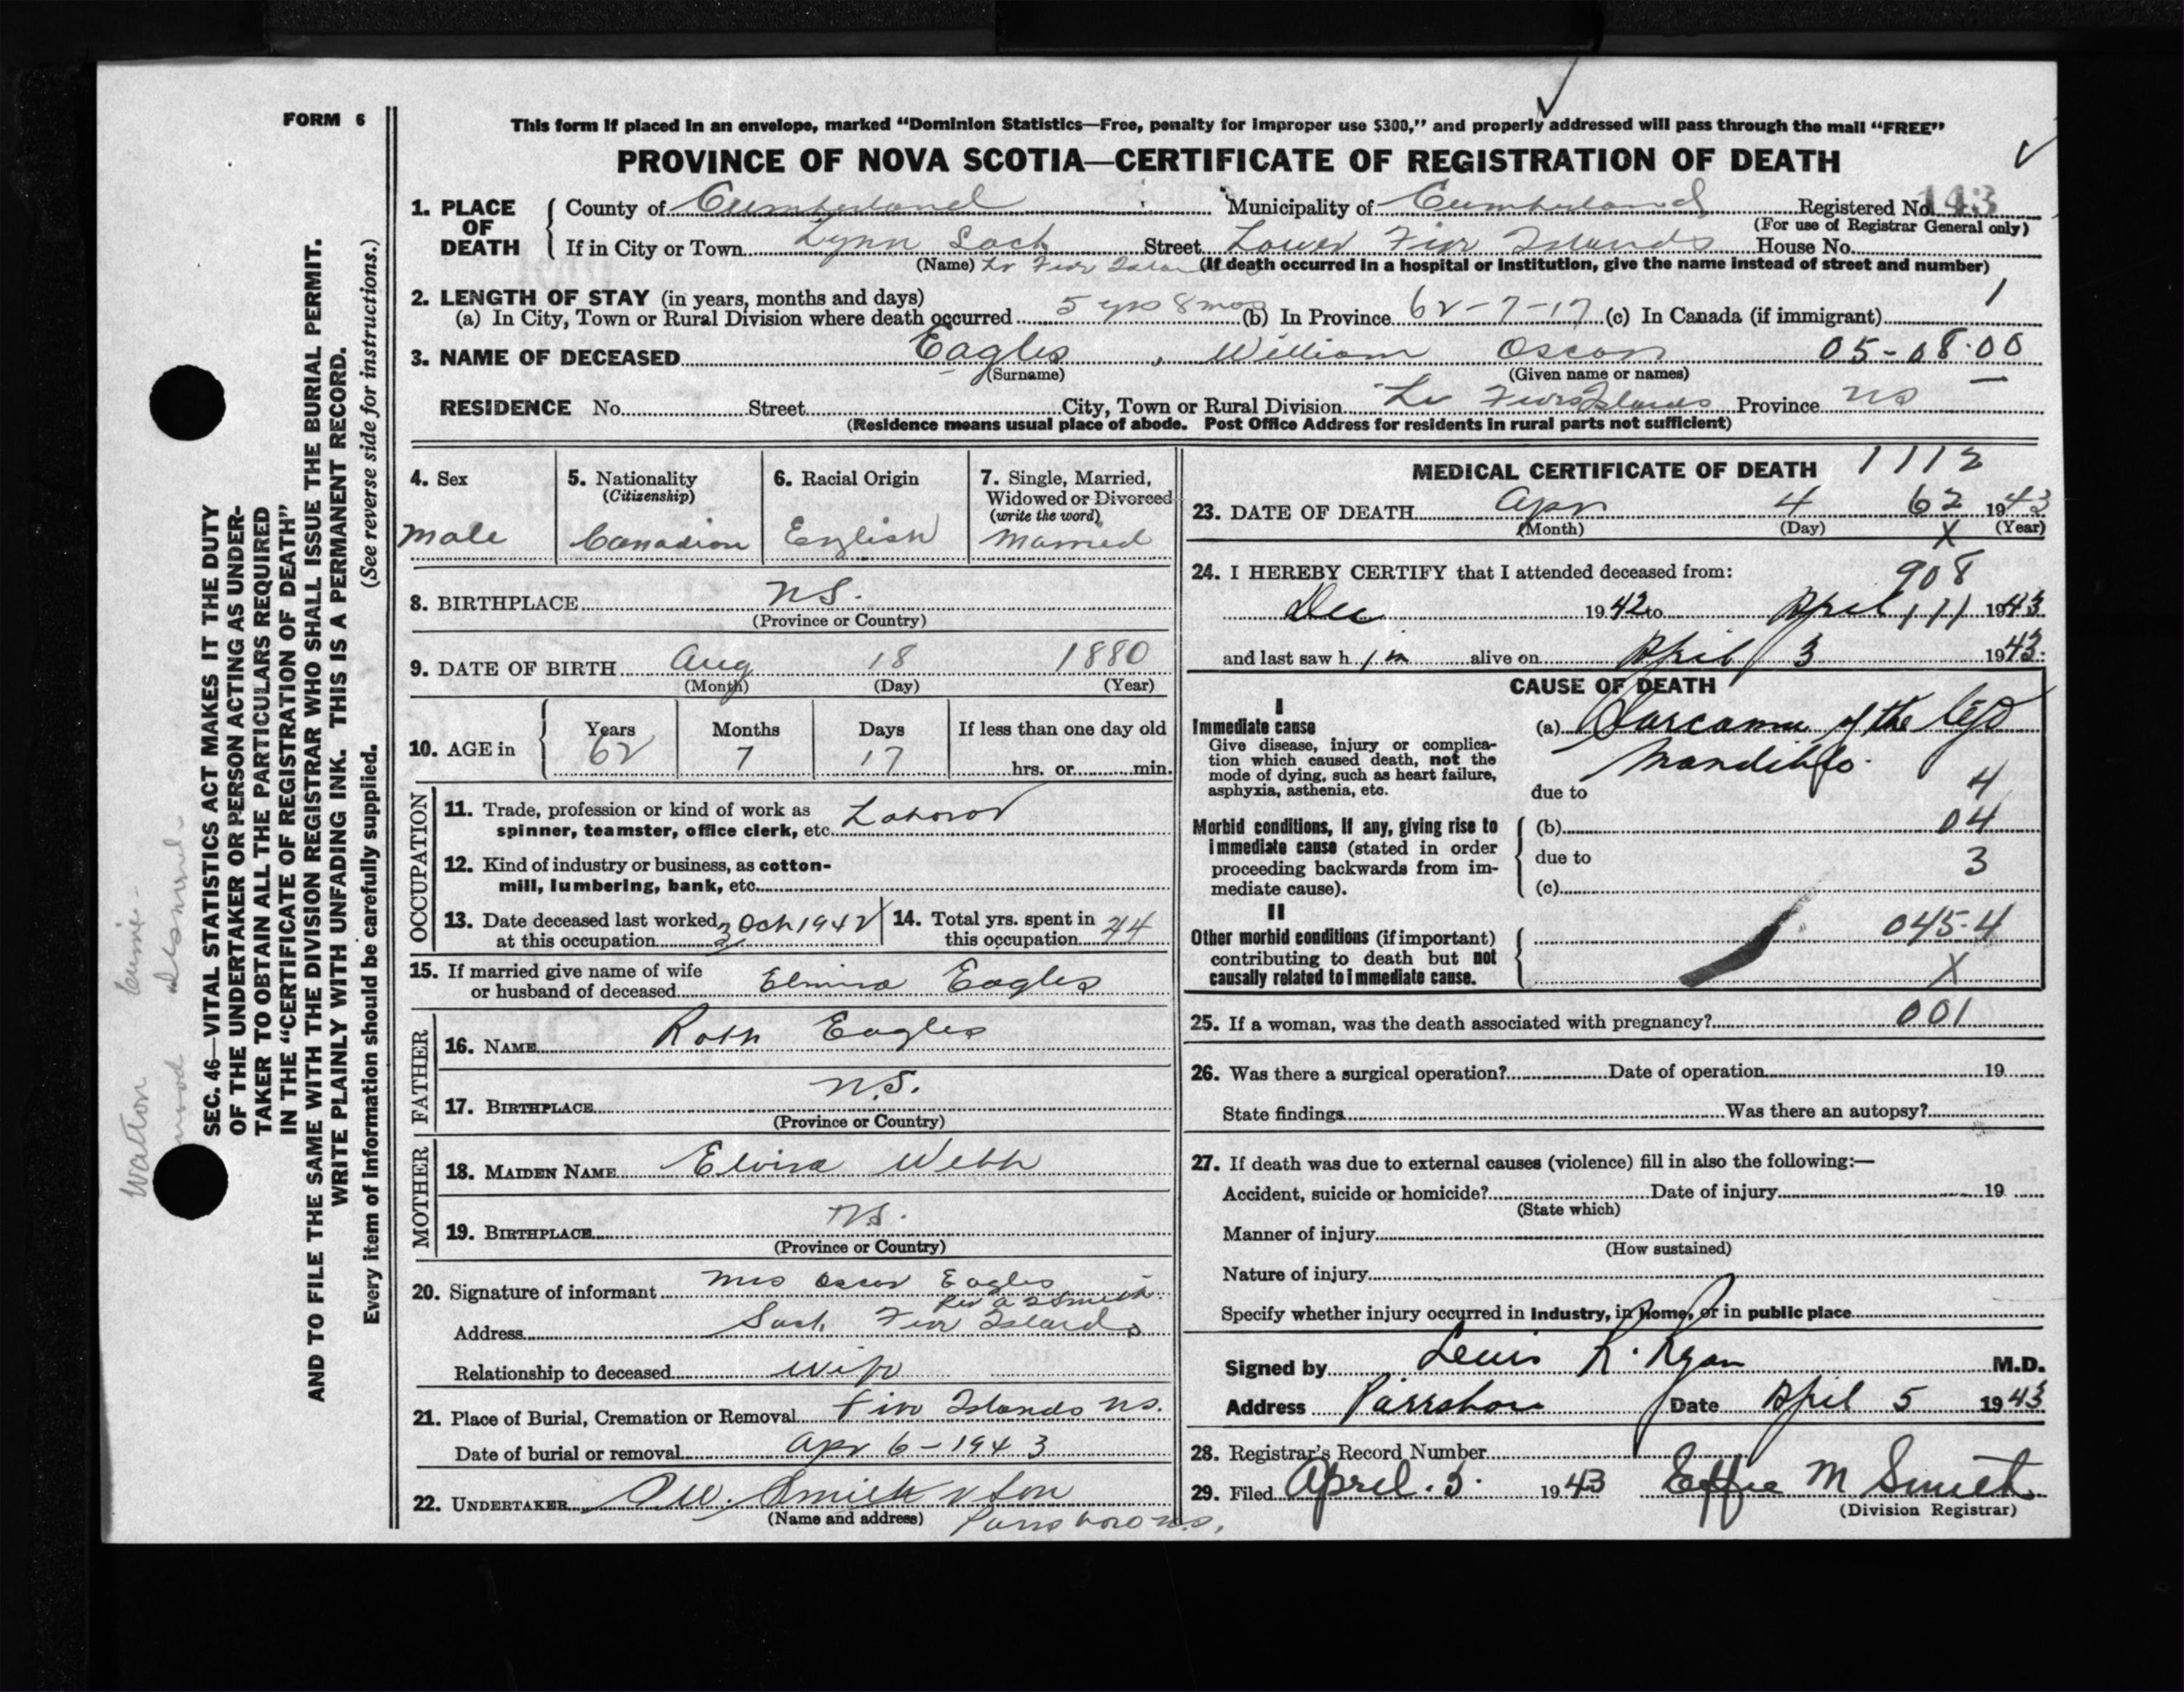 FORM 6
This form if placed in an envelope, marked “Dominion Statistics—Free, penalty for improper use $300,” and properly addressed will pass through the mail “FREE”
PROVINCE OF NOVA SCOTIA—CERTIFICATE OF REGISTRATION OF DEATH
1. PLACE OF DEATH
County of Cumberland Municipality of Cumberland Registered No. 143
(For use of Registrar General only)
If in City or Town Lynn Street Lower Five Islands House No.
(Name) Lr Five (If death occurred in a hospital or institution, give the name instead of street and number)
2. LENGTH OF STAY (in years, months and days) 1
(a) In City, Town or Rural Division where death occurred 5 yrs 8 mos (b) In Province 62-7-17 (c) In Canada (if immigrant)
3. NAME OF DECEASED Eagles, William Oscar 05-08-00
(Surname) (Given name or names)
RESIDENCE No. Street City, Town or Rural Division Lr Five Islands Province NS
(Residence means usual place of abode. Post Office Address for residents in rural parts not sufficient)
4. Sex
Male
5. Nationality
(Citizenship)
Canadian
6. Racial Origin
English
7. Single, Married,
Widowed or Divorced
(write the word)
Married
8. BIRTHPLACE N.S.
(Province or Country)
9. DATE OF BIRTH Aug 18 1880
(Month) (Day) (Year)
10. AGE in Years Months Days If less than one day old
62 7 17 hrs. or min.
OCCUPATION
11. Trade, profession or kind of work as
spinner, teamster, office clerk, etc. Laboror
12. Kind of industry or business, as cotton-
mill, lumbering, bank, etc.
13. Date deceased last worked Oct 1942
at this occupation
14. Total yrs. spent in
this occupation 44
15. If married give name of wife
or husband of deceased Elmira Eagles
FATHER
16. NAME Eagles
17. BIRTHPLACE N.S.
(Province or Country)
MOTHER
18. MAIDEN NAME Elvira Webb
19. BIRTHPLACE NS.
(Province or Country)
20. Signature of informant Mrs Oscar Eagles
Smith
Address Five Islands
Relationship to deceased Wife
21. Place of Burial, Cremation or Removal Five Islands NS.
Date of burial or removal Apr 6-1943
22. UNDERTAKER Smith & Son
(Name and address) Parrsboro N.S.
MEDICAL CERTIFICATE OF DEATH 1112
23. DATE OF DEATH Apr 4 62 1943
(Month) (Day) X (Year)
24. I HEREBY CERTIFY that I attended deceased from: 908
Dec 1942 to April 111 1943
and last saw him alive on April 3 1943.
CAUSE OF DEATH
I
Immediate cause
Give disease, injury or complica-
tion which caused death, not the
mode of dying, such as heart failure,
asphyxia, asthenia, etc.
(a) Sarcoma of the left
Mandible.
due to 4
Morbid conditions, if any, giving rise to
immediate cause (stated in order
proceeding backwards from im-
mediate cause).
(b) 04
due to 3
(c)
II
Other morbid conditions (if important)
contributing to death but not
causally related to immediate cause.
045-4
X
25. If a woman, was the death associated with pregnancy? 001
26. Was there a surgical operation? Date of operation 19
State findings Was there an autopsy?
27. If death was due to external causes (violence) fill in also the following:—
Accident, suicide or homicide? Date of injury 19
(State which)
Manner of injury
(How sustained)
Nature of injury
Specify whether injury occurred in industry, in home, or in public place
Signed by Lewis R. Ryan M.D.
Address Parrsboro Date April 5 1943
28. Registrar's Record Number
29. Filed April. 5. 1943 Effie M Smith
(Division Registrar)
SEC. 46—VITAL STATISTICS ACT MAKES IT THE DUTY
OF THE UNDERTAKER OR PERSON ACTING AS UNDER-
TAKER TO OBTAIN ALL THE PARTICULARS REQUIRED
IN THE “CERTIFICATE OF REGISTRATION OF DEATH”
AND TO FILE THE SAME WITH THE DIVISION REGISTRAR WHO SHALL ISSUE THE BURIAL PERMIT.
WRITE PLAINLY WITH UNFADING INK. THIS IS A PERMANENT RECORD.
Every item of information should be carefully supplied. (See reverse side for instructions.)
Walton